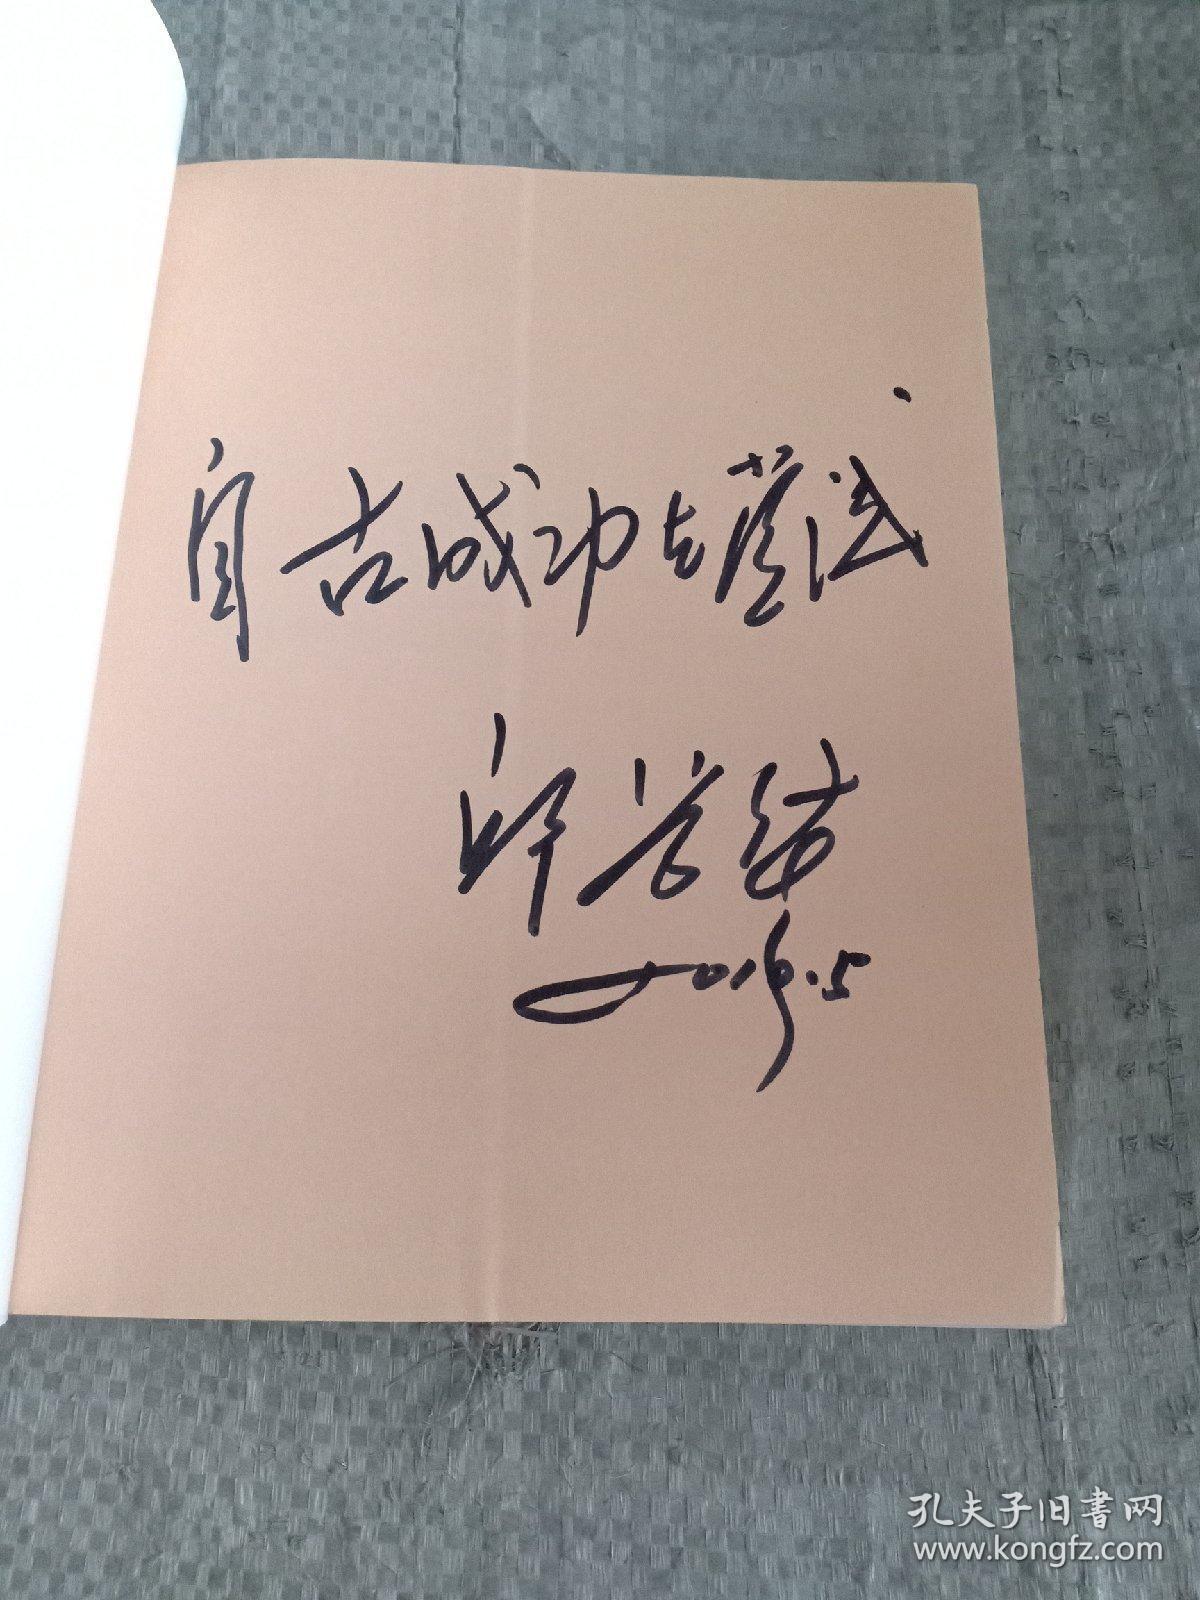 自古成功在尝试
2019.5
孔夫子旧书网
www.kongfz.com